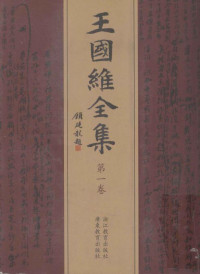 王國維全集
第一卷
顧廷龍題
浙江教育出版社
廣東教育出版社